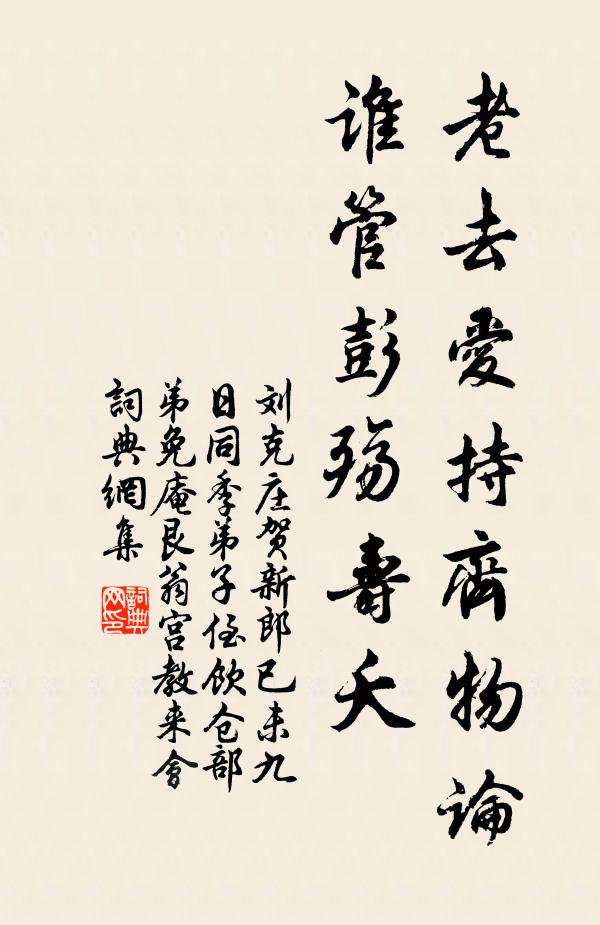 老去愛持齊物論
谁管彭殤壽夭
刘克庄贺新郎已未九
日同季弟子侄飲仓部
弟免庵艮翁宫教来會
詞典網集
詞典网印